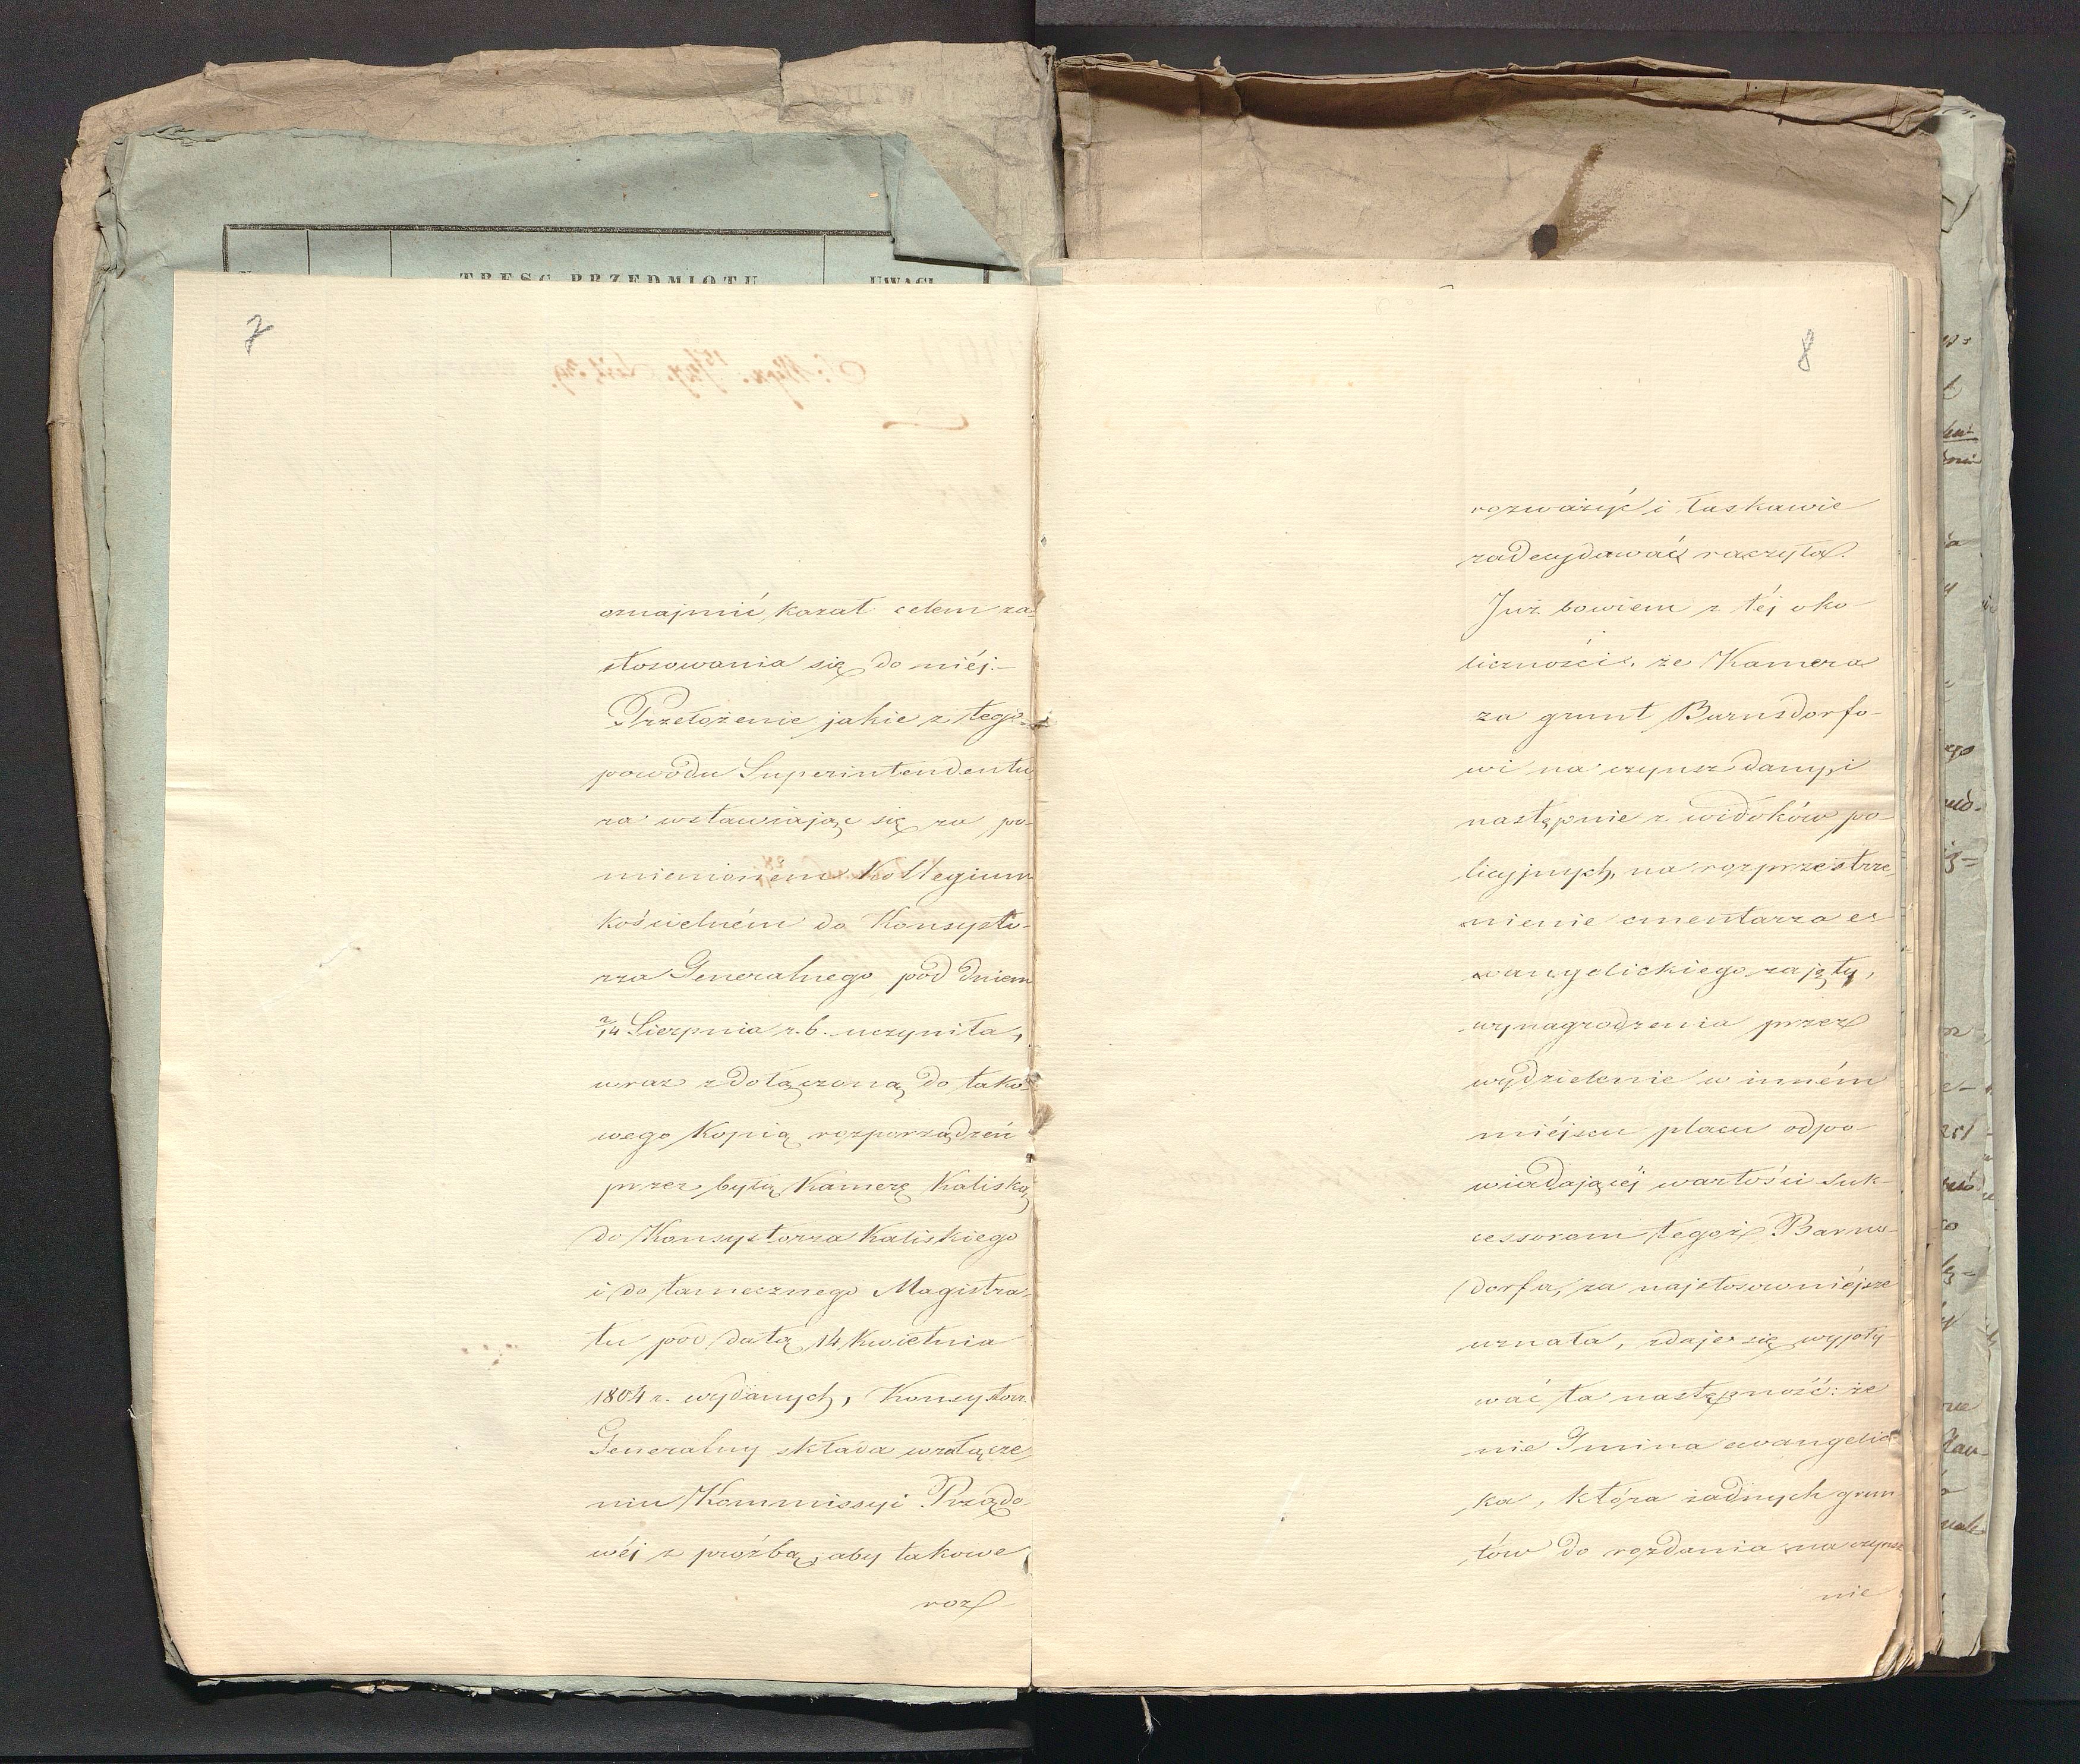 TRESC PRZEDMIOTU
UWAGI
7
oznajmić kazał celem za-
stosowania się do niéj.—
Przełożenie jakie z tego
powodu Superintendentu-
ra wstawiając się za po-
mienioném Kollegium
kościelném do Konsysto-
rza Generalnego pod dniem
2/14 Sierpnia r. b. uczyniła,
wraz z dołączoną do tako-
wego Kopią rozporządzeń
przez byłą Kamerę Kaliską
do Konsystorza Kaliskiego
i do tamecznego Magistra-
tu pod datą 14 Kwietnia
1804 r. wydanych, Konsystorz
Generalny składa w załącze-
niu Kommissyi Rządo-
wéj z proźbą, aby takowe
roz
8
rozważyć i łaskawie
zadecydować raczyła.
Już bowiem z téj oko-
liczności, że Kamera
za grunt Barnsdorfo-
wi na czynsz dany, i
następnie z widoków po-
licyjnych, na rozprzestrze-
nienie cmentarza e-
wangelickiego zajęty,
wynagrodzenia przez
wydzielenie w inném
miéjscu placu odpo-
wiadającéj wartości suk-
cessorom tegoż Barns-
dorfa, za najstosowniéjsze
uznała, zdaje się wypły-
wać ta następność: że
nie Gmina ewangelic-
ka, która żadnych grun-
tów do rozdania na czynsz
nie